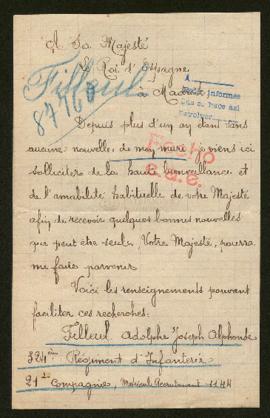 A Sa Majesté
Le Roi d'Espagne
à Madrid
Filleul
87160
Depuis plus d'un an étant sans
aucune nouvelle de mon mari je viens ici
solliciter de la haute bienveillance et
de l'amabilité habituelle de votre Majesté
afin de recevoir quelques bonnes nouvelles
que peut être seule, Votre Majesté, pourra
me faire parvenir.
Voici les renseignements pouvant
faciliter ces recherches:
Filleul Adolphe Joseph Alphonse
324ème Régiment d'Infanterie
21e Compagnie, Matricule Recrutement 1144